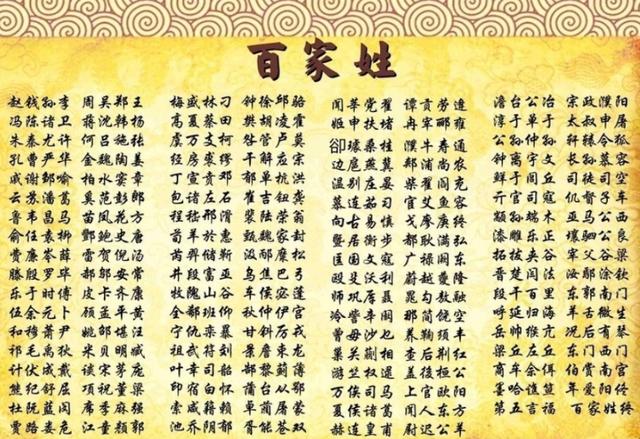 百家姓
赵钱孙李 周吴郑王
冯陈诸卫 蒋沈韩杨
朱秦尤许 何吕施张
孔曹严华 金魏陶姜
戚谢邹喻 柏水窦章
云苏潘葛 奚范彭郎
鲁韦昌马 苗凤花方
俞任袁柳 酆鲍史唐
费廉岑薛 雷贺倪汤
滕殷罗毕 郝邬安常
乐于时傅 皮卡齐康
伍余元卜 顾孟平黄
和穆萧尹 姚邵堪汪
祁毛禹狄 米贝明臧
计伏成戴 谈宋茅庞
熊纪舒屈 项祝董梁
杜阮蓝闵 席季麻强
贾路娄危 江童颜郭
梅盛林刁 钟徐邱骆
高夏蔡田 樊胡凌霍
虞万支柯 昝管卢莫
经房裘缪 干解应宗
丁宣贲邓 郁单杭洪
包诸左石 崔吉钮龚
程嵇邢滑 裴陆荣翁
荀羊於惠 甄曲家封
芮羿储靳 汲邴糜松
井段富巫 乌焦巴弓
牧隗山谷 车侯宓蓬
全郗班仰 秋仲伊宫
宁仇栾暴 甘钭厉戎
祖武符刘 景詹束龙
叶幸司韶 郜黎蓟薄
印宿白怀 蒲邰从鄂
索咸籍赖 卓蔺屠蒙
池乔阴郁 胥能苍双
闻莘党翟 谭贡劳逄
姬申扶堵 冉宰郦雍
卻璩桑桂 濮牛寿通
边扈燕冀 郏浦尚农
温别庄晏 柴瞿阎充
慕连茹习 宦艾鱼容
向古易慎 戈廖庾终
暨居衡步 都耿满弘
匡国文寇 广禄阙东
殴殳沃利 蔚越夔隆
师巩厍聂 晁勾敖融
冷訾辛阚 那简饶空
曾毋沙乜 养鞠须丰
巢关蒯相 查后荆红
游竺权逯 盖益桓公
万俟司马 上官欧阳
夏侯诸葛 闻人东方
赫连皇甫 尉迟公羊
澹台公冶 宗政濮阳
淳于单于 太叔申屠
公孙仲孙 轩辕令狐
钟离宇文 长孙慕容
鲜于闾丘 司徒司空
亓官司寇 仉督子车
颛孙端木 巫马公西
漆雕乐正 壤驷公良
拓跋夹谷 宰父谷梁
晋楚闫法 汝鄢涂钦
段干百里 东郭南门
呼延归海 羊舌微生
岳帅缑亢 况后有琴
梁丘左丘 东门西门
商牟佘佴 伯赏南宫
墨哈谯笪 年爱阳佟
第五言福 百家姓终